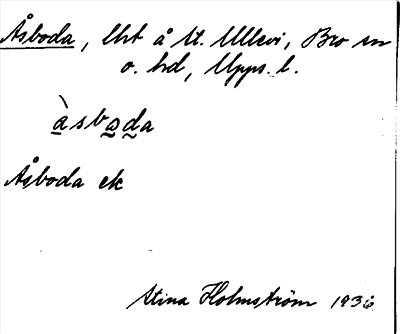 Åsboda, lht å St. Ullevi, Bro sn
o. hd, Upps. l.
àsbo̲da
Åsboda ek
Stina Holmström 1936